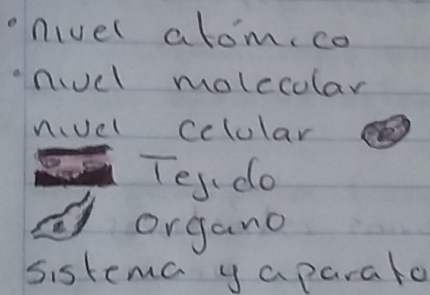 • nivel atómico
• nivel molecular
nivel celular
Tejido
organo
sistema y aparato